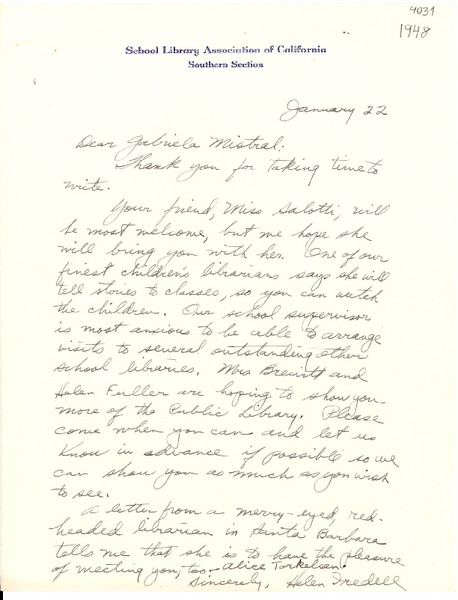 4031
1948
School Library Association of California
Southern Section
January 22
Dear Gabriela Mistral.
Thank you for taking time to
write.
Your friend, Miss Salotti, will
be most welcome, but we hope she
will bring you with her. One of our
finest children's librarians says she will
tell stories to classes, so you can watch
the children. Our school supervisor
is most anxious to be able to arrange
visits to several outstanding other
school libraries. Mrs Brewitt and
Helen Fuller are hoping to show you
more of the Public Library. Please
come when you can and let us
know in advance if possible so we
can show you as much as you wish
to see.
A letter from a merry-eyed, red-
headed librarian in Santa Barbara
tells me that she is to have the pleasure
of meeting you, too - Alice Torkelson.
Sincerely, Helen Iredell